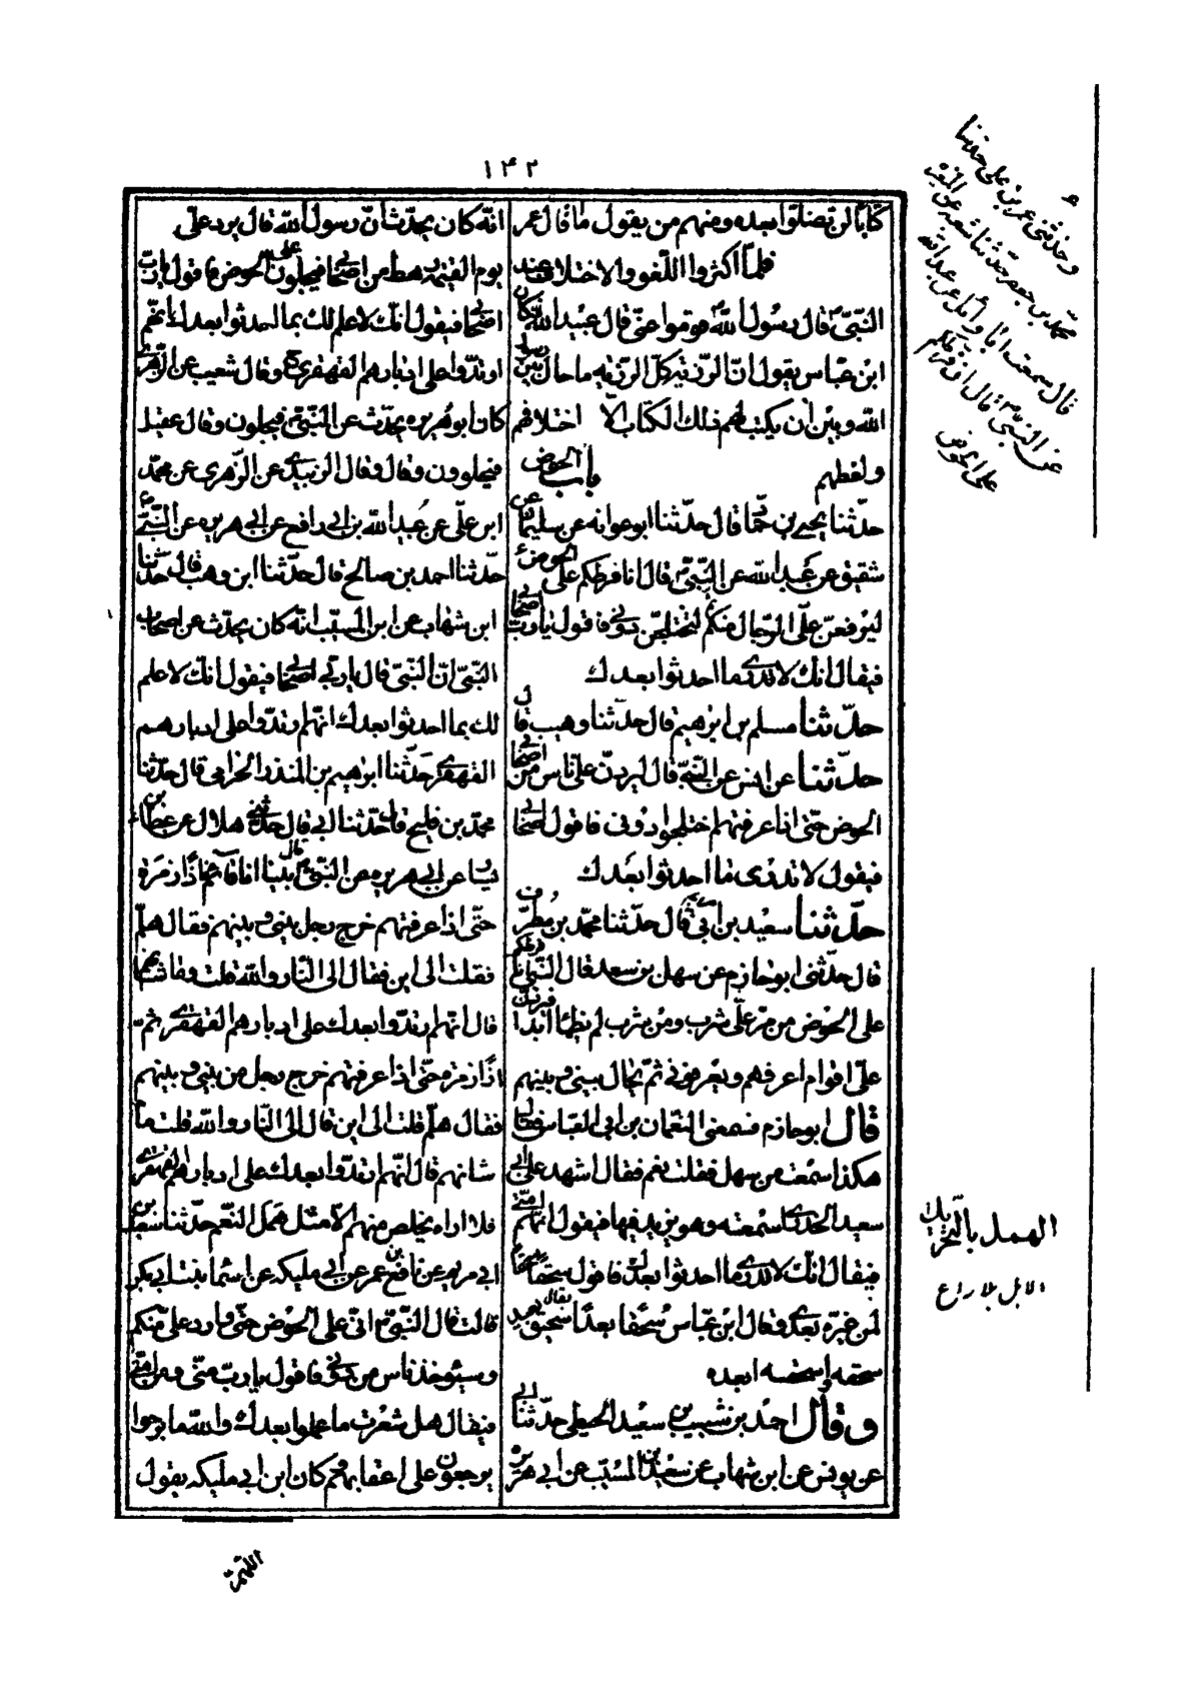 ١٤٢
كتابا لن تضلوا بعده ومنهم من يقول ما قال عمر
فلما اكثروا اللغو والاختلاف عند
النبي قال رسول الله قوموا عني قال عبيد الله فكان
ابن عباس يقول ان الرزية كل الرزية ما حال بين رسول
الله وبين ان يكتب لهم ذلك الكتاب الا اختلافهم
ولغطهم باب الحوض
حدثنا يحيى بن حماد قال حدثنا ابو عوانه عن سليمان عن
شقيق عن عبد الله عن النبي قال انا فرطكم على الحوض
ليرفعن علي الرجال منكم ليختلجن دوني فاقول يا رب اصحابي
فيقال انك لا تدري ما احدثوا بعدك
حدثنا مسلم بن ابرهيم قال حدثنا وهيب قال
حدثنا عن انس عن النبي قال ليردن على ناس من اصحابي
الحوض حتى انا عرفتهم اختلجوا دوني فاقول اصحابي
فيقول لا تدرى ما احدثوا بعدك
حدثنا سعيد بن ابي مريم قال حدثنا محمد بن مطرف
قال حدثني ابو حازم عن سهل بن سعد قال النبي انا فرطكم
على الحوض من مر علي شرب ومن شرب لم يظما ابدا فيردن
علي اقوام اعرفهم ويعرفوني ثم يحال بيني وبينهم
قال ابو حازم فسمعني النعمان بن ابي العباس فقال
هكذا سمعت من سهل فقلت نعم فقال اشهد على ابي
سعيد الخدري لسمعته وهو يزيد فيها فيقول انهم امتي
فيقال انك لا تدري ما احدثوا بعدك فاقول سحقا سحقا
لمن غير بعدي وقال ابن عباس سحقا بعدا يقال سحيق بعيد
سحقه واسحقه ابعده
وقال احمد بن شبيب بن سعيد الحبطي حدثنا ابي
عن يونس عن ابن شهاب عن سعيد بن المسيب عن ابي هريره
انه كان يحدث ان رسول الله قال يرد علي
يوم القيمة رهط من اصحابي فيجلون على الحوض فاقول يا رب
اصحابي فيقول انك لا علم لك بما احدثوا بعدك انهم
ارتدوا على ادبارهم القهقرى وقال شعيب عن الزهري
كان ابو هريره يحدث عن النبي فيجلون وقال عقيل
فيحلوون وقال وقال الزبيدي عن الزهري عن محمد
ابن علي عن عبيد الله بن ابي رافع عن ابي هريره عن النبي
حدثنا احمد بن صالح قال حدثنا ابن وهب قال حدثنا
ابن شهاب عن ابن المسيب انه كان يحدث عن اصحاب
النبي ان النبي قال يا رب اصحابي فيقول انك لا علم
لك بما احدثوا بعدك انهم ارتدوا على ادبارهم
القهقرى حدثنا ابرهيم بن المنذر الحزامي قال حدثنا
محمد بن فليح قال حدثنا ابي قال حدثني هلال عن عطاء بن
يسار عن ابي هريره عن النبي قال بينا انا قائم فاذا زمرة
حتى اذا عرفتهم خرج رجل بيني وبينهم فقال هلم
فقلت الى اين فقال الى النار والله قلت وما شانهم
قال انهم ارتدوا بعدك على ادبارهم القهقرى ثم
اذا زمرة حتى اذا عرفتهم خرج رجل من بيني وبينهم
فقال هلم قلت الى اين قال الى النار والله قلت ما
شانهم قال انهم ارتدوا بعدك على ادبارهم القهقرى
فلا اراه يخلص منهم الا مثل همل النعم حدثنا سعيد بن
ابي مريم عن نافع بن عمر عن ابي مليكه عن اسما بنت ابي بكر
قالت قال النبي اني على الحوض حتى وارد علي منكم
وسيؤخذ ناس من دوني فاقول يا رب مني ومن امتي
فيقال هل شعرت ما عملوا بعدك والله ما برحوا
يرجعون على اعقابهم فكان ابن ابي مليكه يقول
اللهم
وحدثني عمر بن علي حدثنا
محمد بن جعفر حدثنا شعبه عن المغيره
قال سمعت ابا وائل عن عبد الله
عن النبي قال انا فرطكم
على الحوض
الهمل بالتحريك
الابل بلا راع